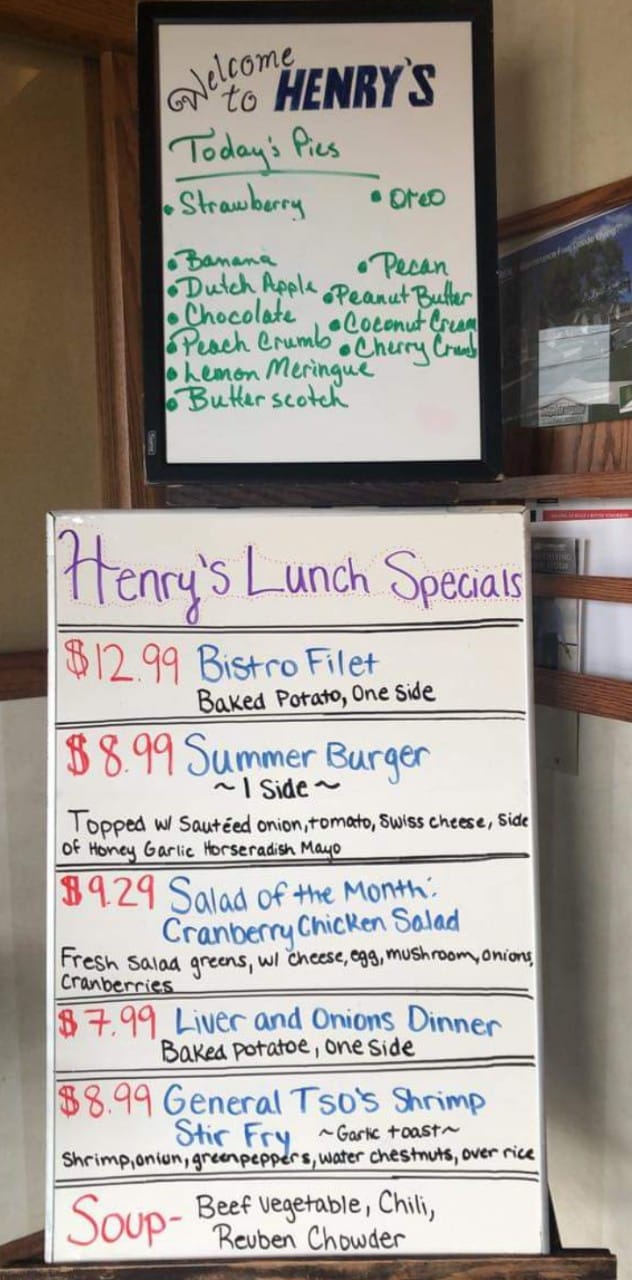 Welcome
to HENRY'S
Today's Pies
• Strawberry • Oreo
• Banana • Pecan
• Dutch Apple • Peanut Butter
• Chocolate • Coconut Cream
• Peach Crumb • Cherry Crumb
• Lemon Meringue
• Butterscotch
Henry's Lunch Specials
$12.99 Bistro Filet
Baked Potato, One Side
$8.99 Summer Burger
~ 1 Side ~
Topped w/ Sautéed onion, tomato, Swiss cheese, Side
of Honey Garlic Horseradish Mayo
$9.29 Salad of the Month:
Cranberry Chicken Salad
Fresh Salad greens, w/ cheese, egg, mushroom, onions,
Cranberries
$7.99 Liver and Onions Dinner
Baked potatoe, one side
$8.99 General Tso's Shrimp
Stir Fry ~Garlic toast~
Shrimp, onion, greenpeppers, water chestnuts, over rice
Soup- Beef Vegetable, Chili,
Reuben Chowder